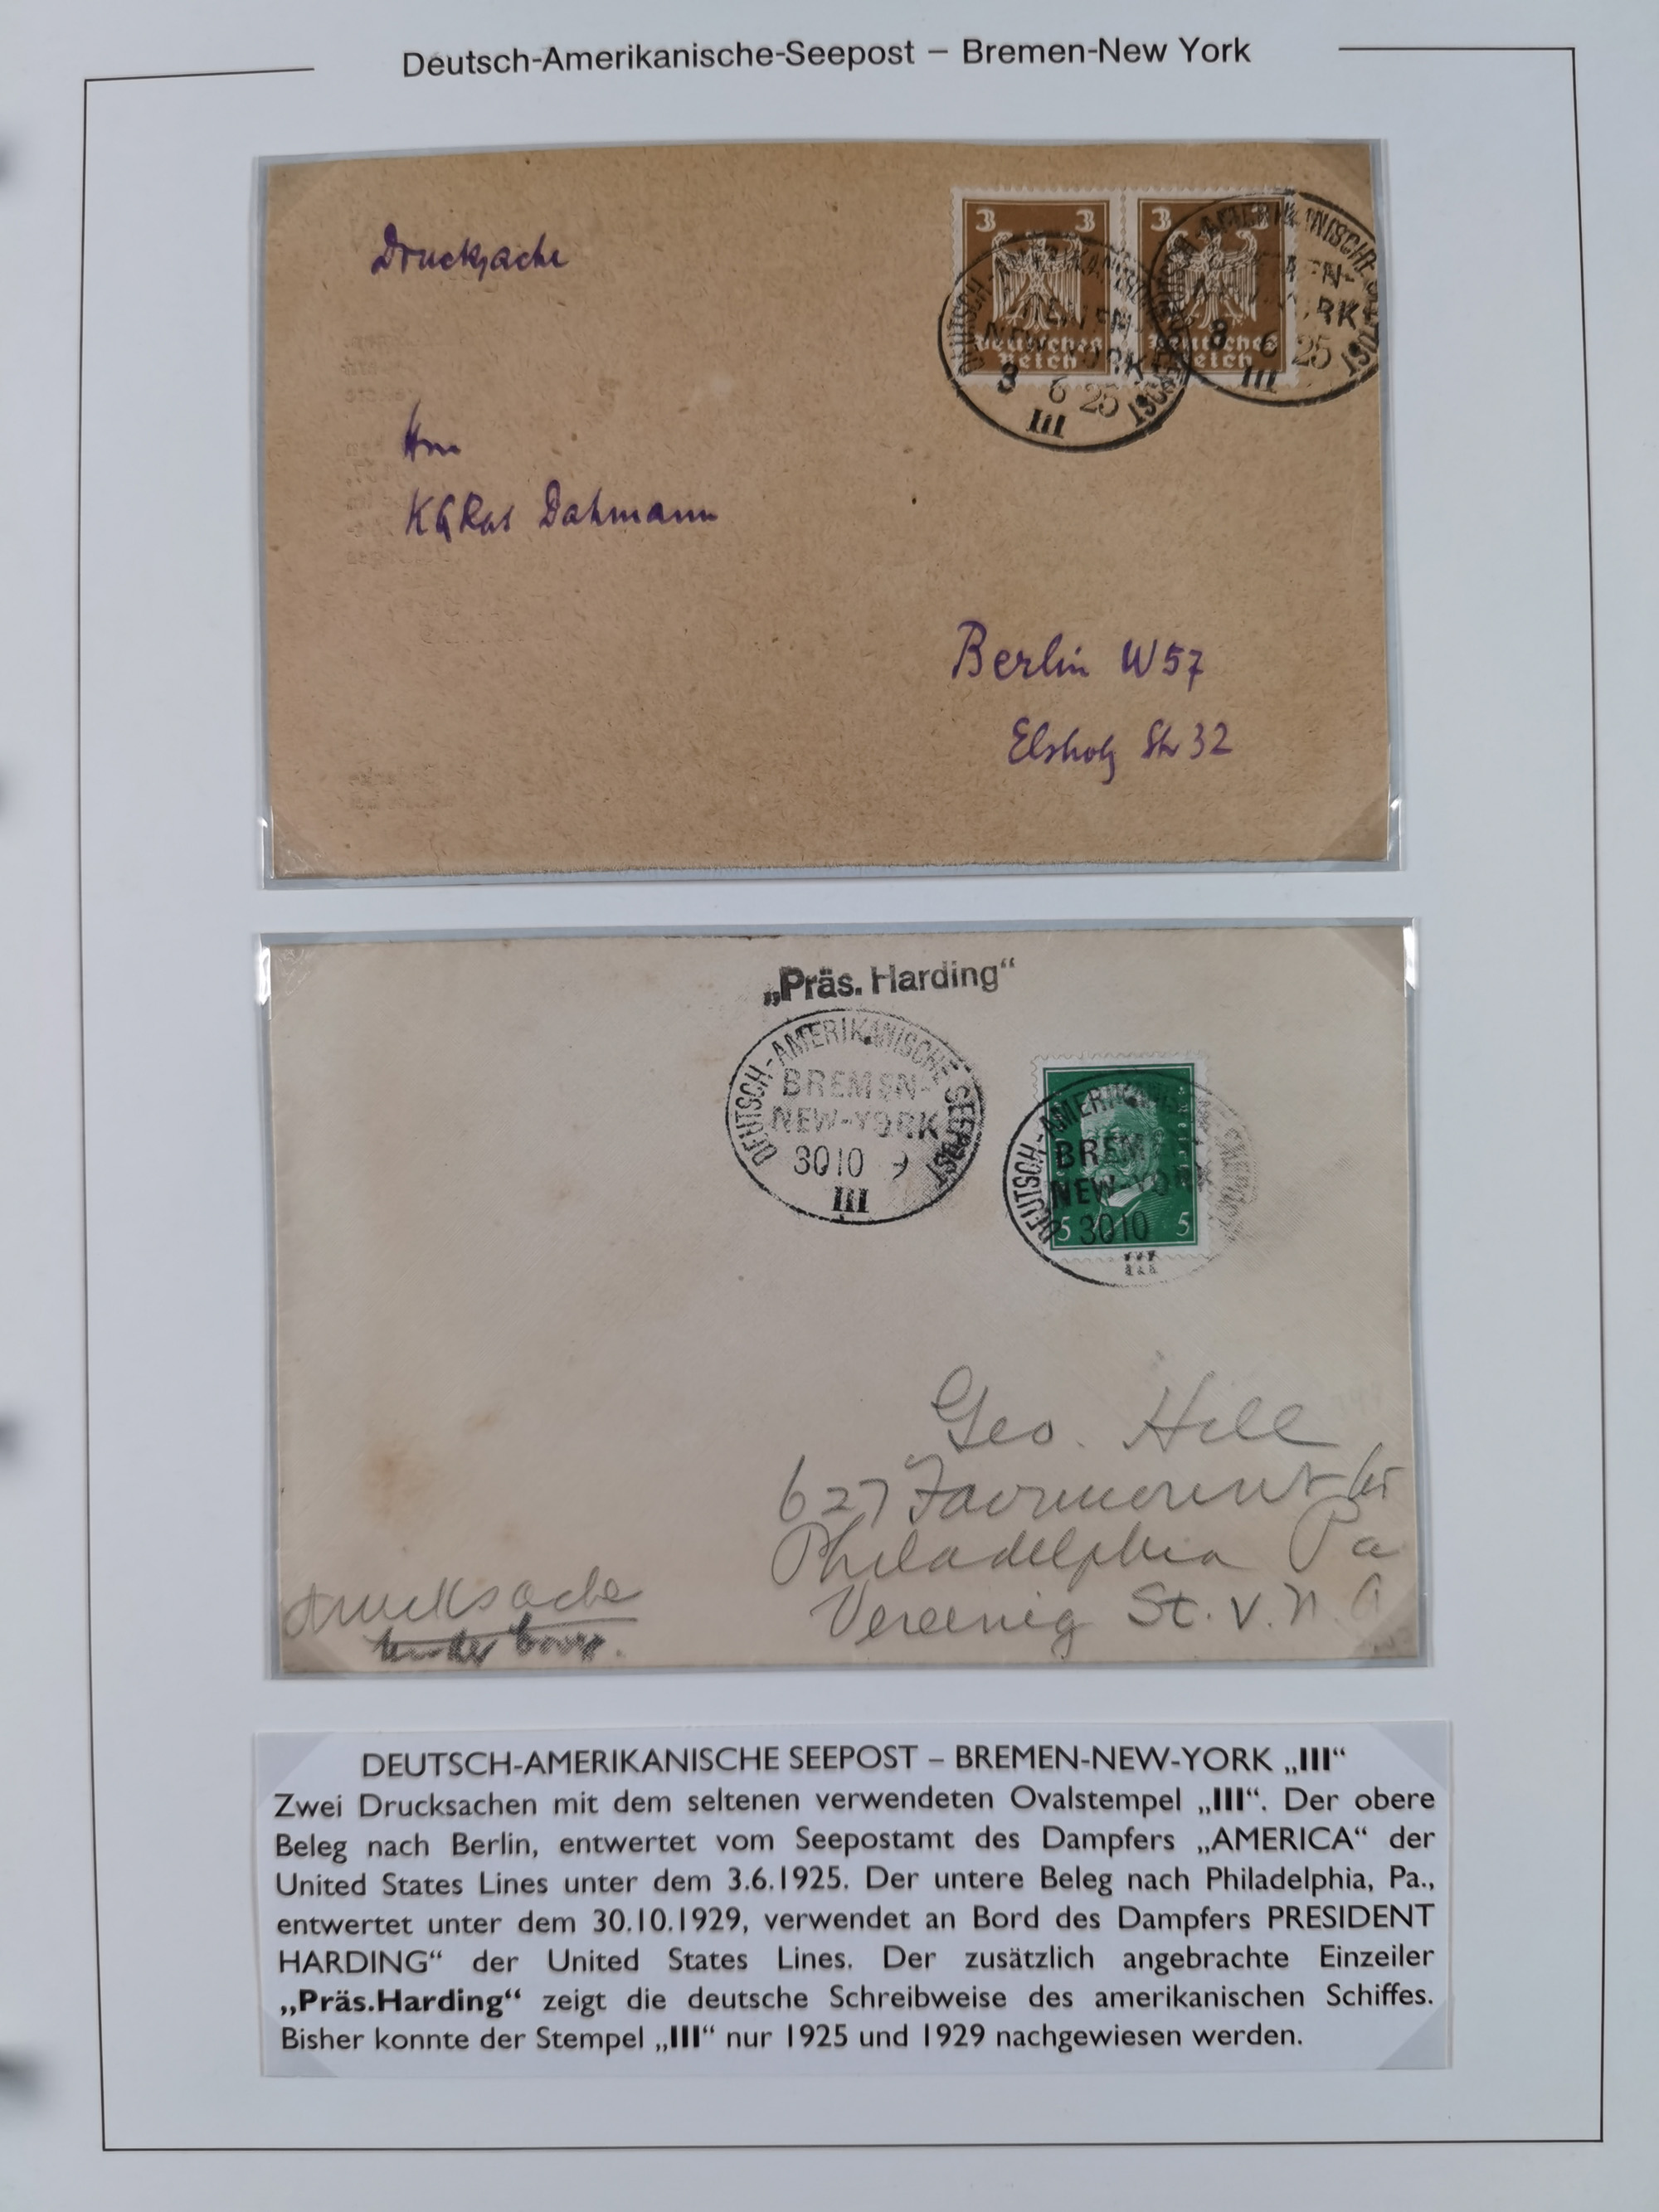 Deutsch-Amerikanische-Seepost – Bremen-New York
Drucksache
3 3
3
Deutsches Reich
Deutsches Reich
DEUTSCH-AMERIKANISCHE SEEPOST
NEW YORK
3 6 25
III
DEUTSCH-AMERIKANISCHE-SEEPOST
3 6 25
III
Hrn
Dahmann
Berlin W57
Elsholz Str 32
„Präs. Harding“
DEUTSCH-AMERIKANISCHE-SEEPOST
BREMEN-
NEW-YORK
3010 9
III
DEUTSCH-AMERIK
BREM
NEW-YORK
5 3010 5
III
Geo. Hill
627 Fairmount
Philadelphia Pa
Vereenig St. v. N. A
Drucksache
DEUTSCH-AMERIKANISCHE SEEPOST – BREMEN-NEW-YORK „III“
Zwei Drucksachen mit dem seltenen verwendeten Ovalstempel „III“. Der obere
Beleg nach Berlin, entwertet vom Seepostamt des Dampfers „AMERICA“ der
United States Lines unter dem 3.6.1925. Der untere Beleg nach Philadelphia, Pa.,
entwertet unter dem 30.10.1929, verwendet an Bord des Dampfers PRESIDENT
HARDING“ der United States Lines. Der zusätzlich angebrachte Einzeiler
„Präs.Harding“ zeigt die deutsche Schreibweise des amerikanischen Schiffes.
Bisher konnte der Stempel „III“ nur 1925 und 1929 nachgewiesen werden.